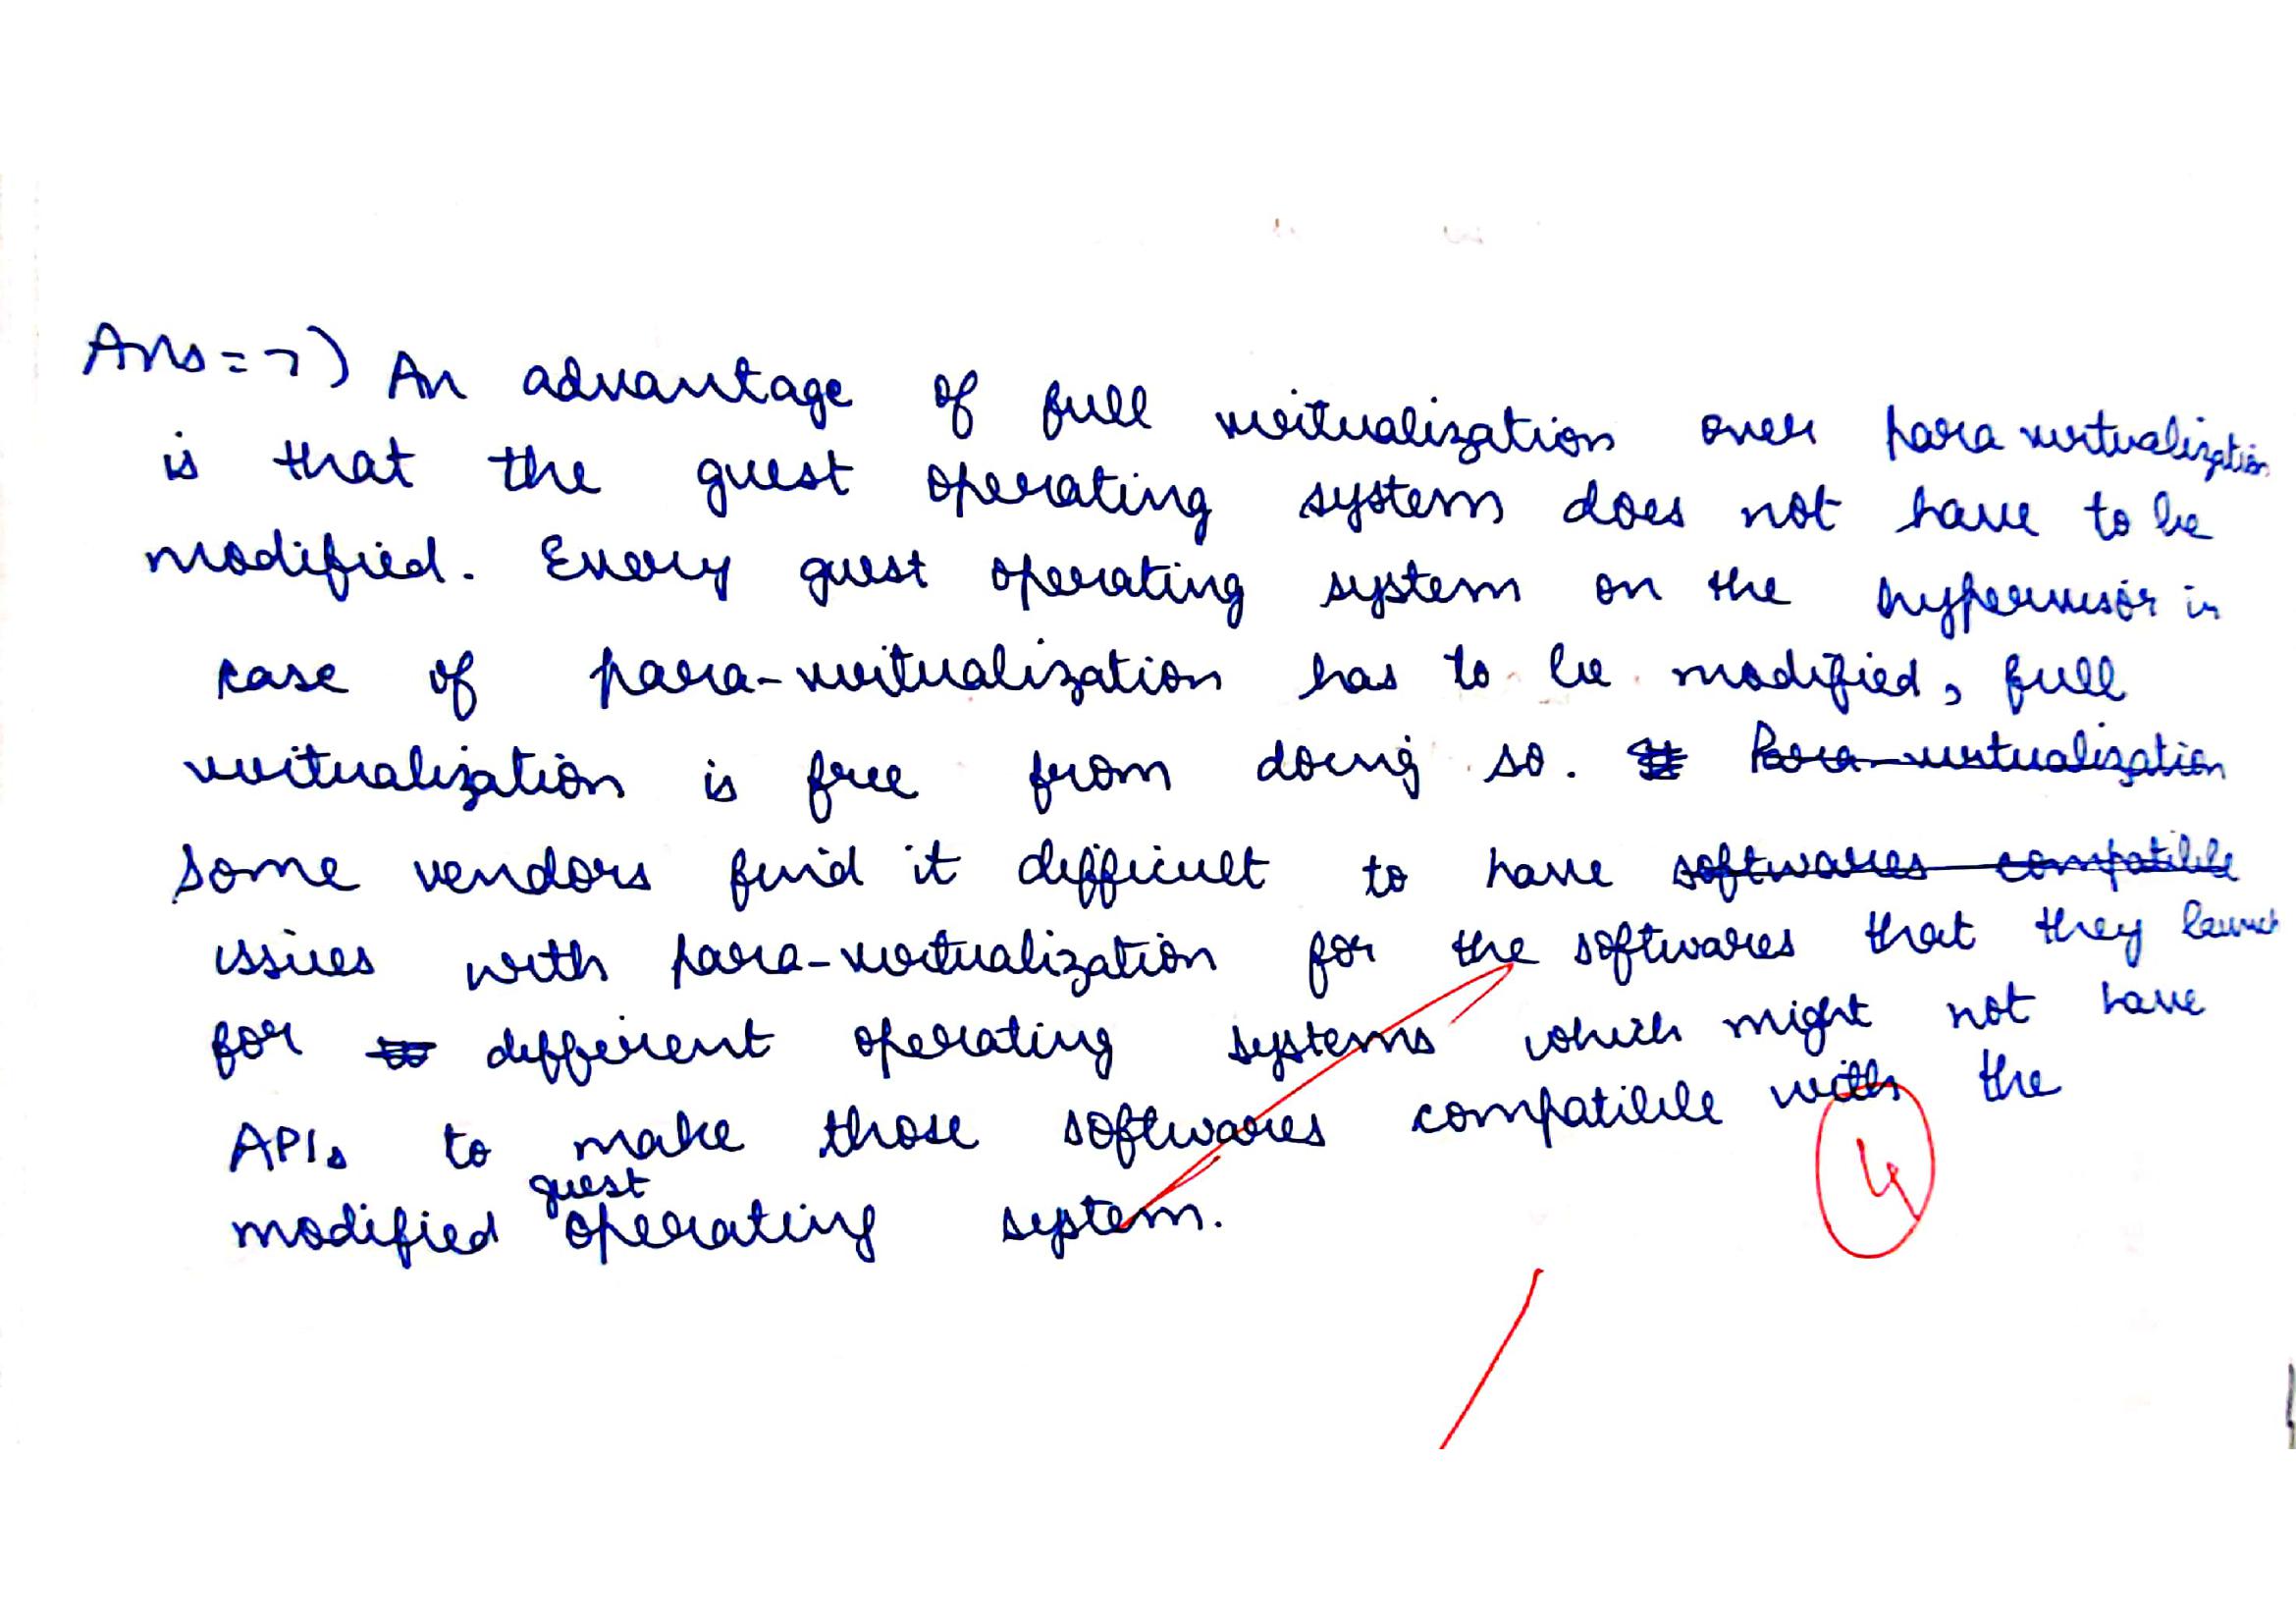 Ans=7) An advantage of full virtualization over para virtualization
is that the guest operating system does not have to be
modified. Every guest operating system on the hypervisor in
case of para-virtualization has to be modified, full
virtualization is free from doing so. Para-virtualization
Some vendors find it difficult to have softwares compatible
issues with para-virtualization for the softwares that they launch
for different operating systems which might not have
APIs to make those softwares compatible with the
modified guest operating system.
4